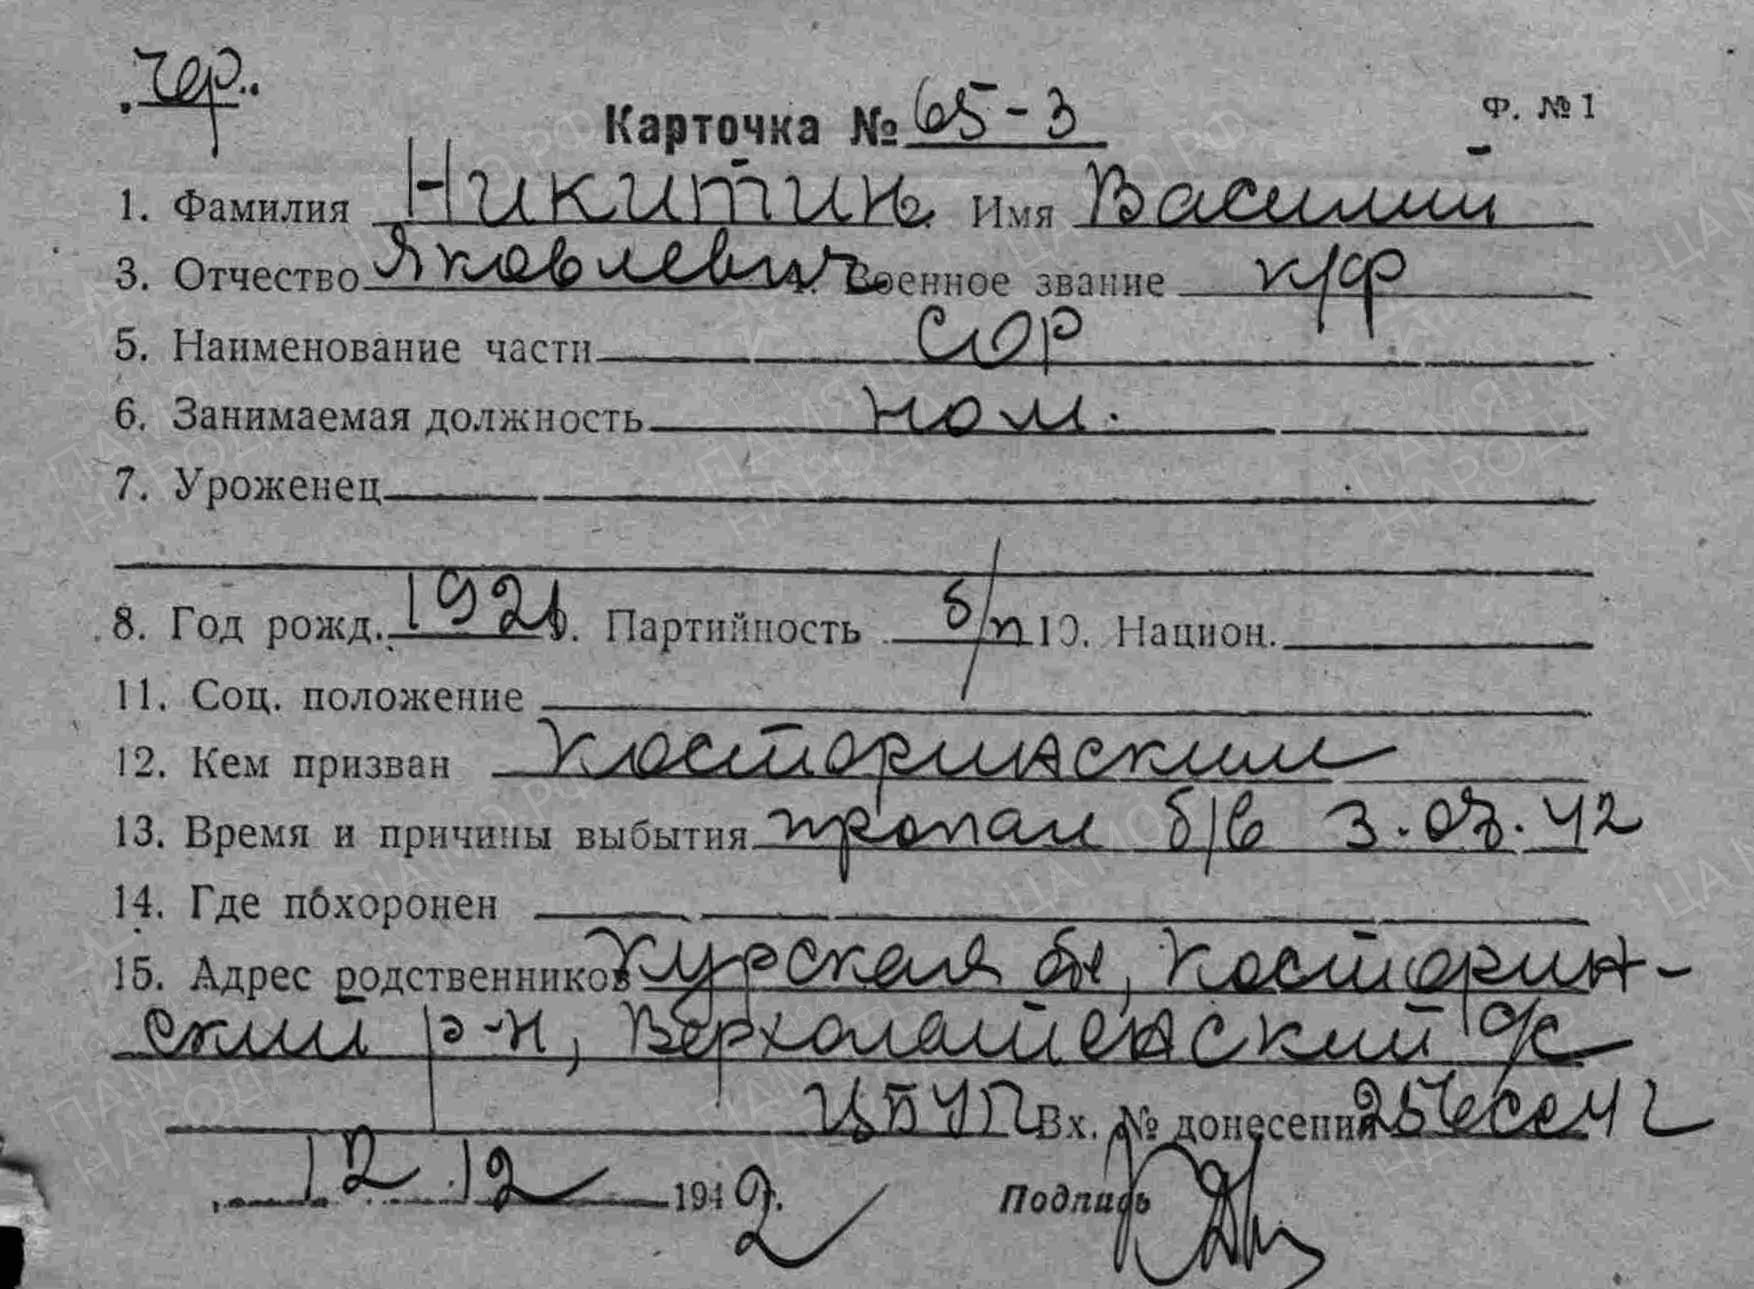 чер..
Карточка № 65-3 Ф. № 1
1. Фамилия Никитин 2. Имя Василий
3. Отчество Яковлевич 4. Военное звание к/ф
5. Наименование части СОР
6. Занимаемая должность ном.
7. Уроженец
8. Год рожд. 1921 9. Партийность б/п 10. Национ.
11. Соц. положение
12. Кем призван Косторинским
13. Время и причины выбытия пропал б/в 3.07.42
14. Где похоронен
15. Адрес родственников Курская обл, Косторин-
ский р-н, Верхолатенский с/с
ЦБУП Вх. № донесения
12 12 1942 г. Подпись